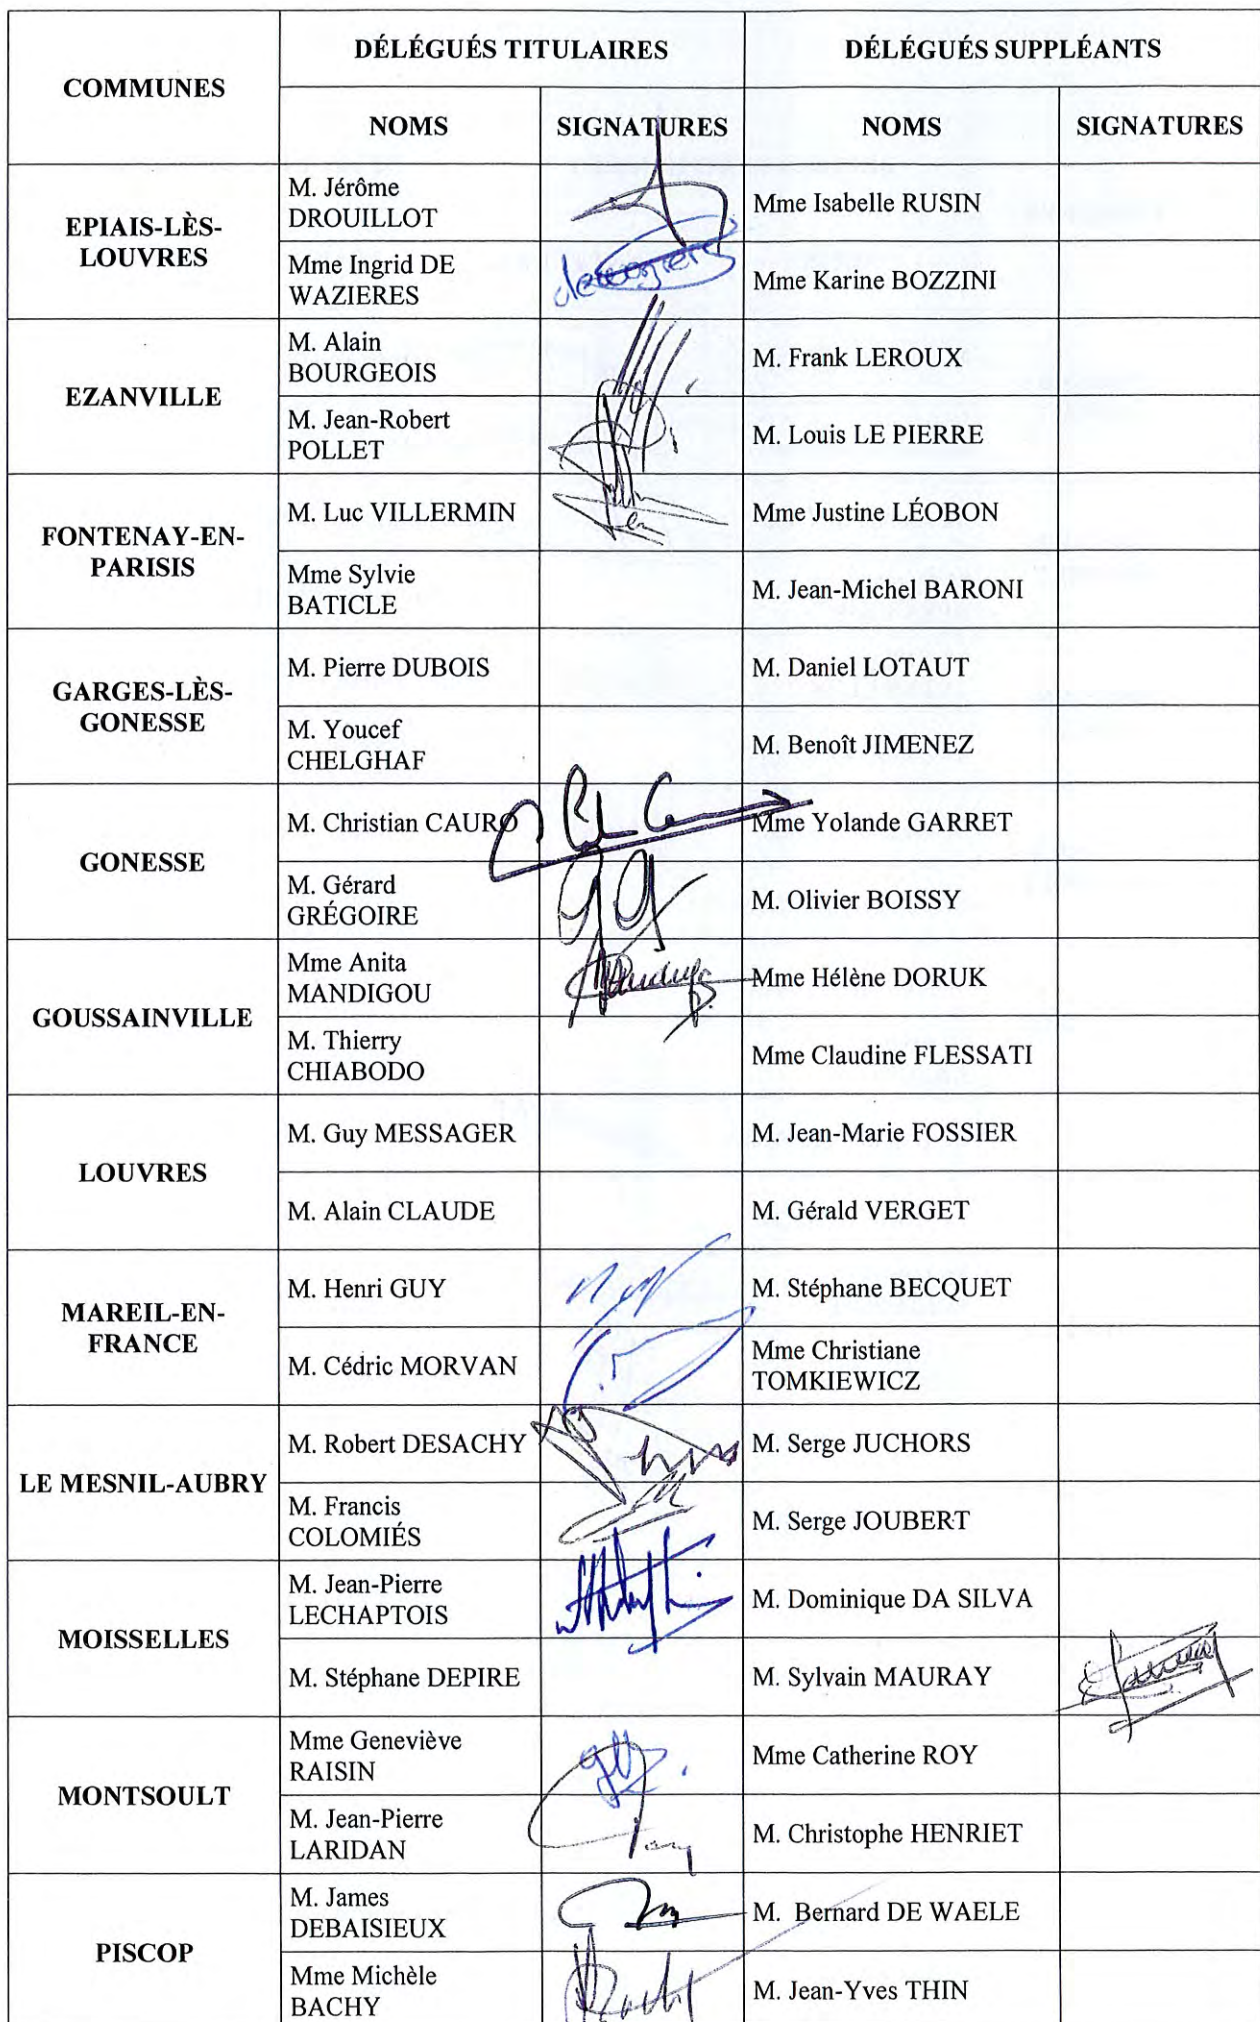 COMMUNES
DÉLÉGUÉS TITULAIRES
DÉLÉGUÉS SUPPLÉANTS
NOMS
SIGNATURES
NOMS
SIGNATURES
EPIAIS-LÈS-
LOUVRES
M. Jérôme
DROUILLOT
Mme Isabelle RUSIN
Mme Ingrid DE
WAZIERES
Mme Karine BOZZINI
EZANVILLE
M. Alain
BOURGEOIS
M. Frank LEROUX
M. Jean-Robert
POLLET
M. Louis LE PIERRE
FONTENAY-EN-
PARISIS
M. Luc VILLERMIN
Mme Justine LÉOBON
Mme Sylvie
BATICLE
M. Jean-Michel BARONI
GARGES-LÈS-
GONESSE
M. Pierre DUBOIS
M. Daniel LOTAUT
M. Youcef
CHELGHAF
M. Benoît JIMENEZ
GONESSE
M. Christian CAURO
Mme Yolande GARRET
M. Gérard
GRÉGOIRE
M. Olivier BOISSY
GOUSSAINVILLE
Mme Anita
MANDIGOU
Mme Hélène DORUK
M. Thierry
CHIABODO
Mme Claudine FLESSATI
LOUVRES
M. Guy MESSAGER
M. Jean-Marie FOSSIER
M. Alain CLAUDE
M. Gérald VERGET
MAREIL-EN-
FRANCE
M. Henri GUY
M. Stéphane BECQUET
M. Cédric MORVAN
Mme Christiane
TOMKIEWICZ
LE MESNIL-AUBRY
M. Robert DESACHY
M. Serge JUCHORS
M. Francis
COLOMIÉS
M. Serge JOUBERT
MOISSELLES
M. Jean-Pierre
LECHAPTOIS
M. Dominique DA SILVA
M. Stéphane DEPIRE
M. Sylvain MAURAY
MONTSOULT
Mme Geneviève
RAISIN
Mme Catherine ROY
M. Jean-Pierre
LARIDAN
M. Christophe HENRIET
PISCOP
M. James
DEBAISIEUX
M. Bernard DE WAELE
Mme Michèle
BACHY
M. Jean-Yves THIN